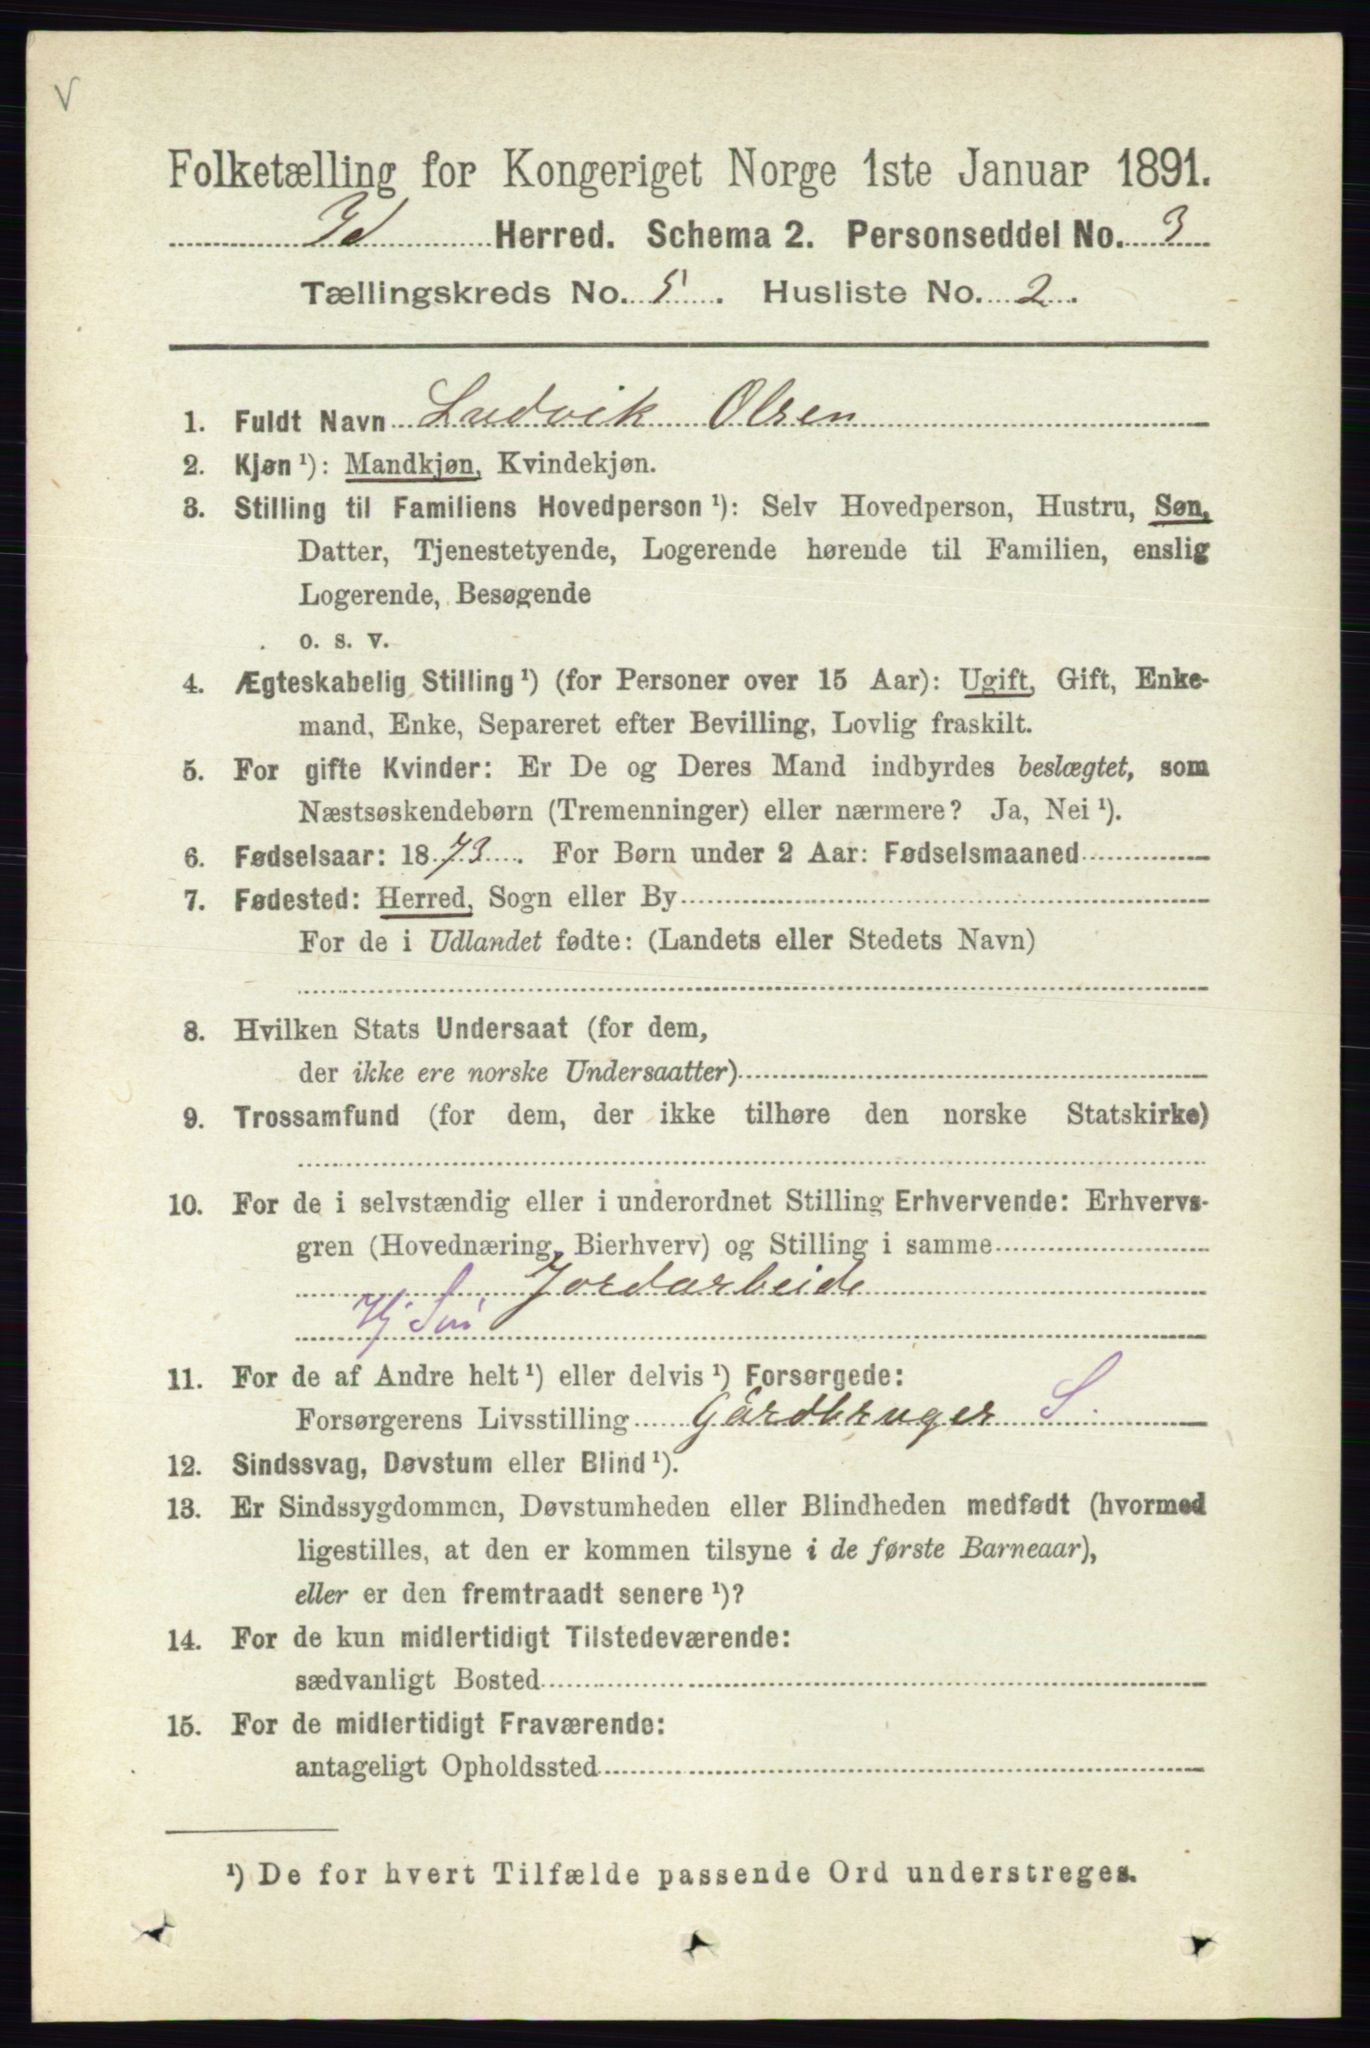 V
Folketælling for Kongeriget Norge 1ste Januar 1891.
Id Herred. Schema 2. Personseddel No. 3
Tællingskreds No. 5. Husliste No. 2.
1. Fuldt Navn Ludvik Olsen
2. Kjøn¹): Mandkjøn, Kvindekjøn.
3. Stilling til Familiens Hovedperson¹): Selv Hovedperson, Hustru, Søn,
Datter, Tjenestetyende, Logerende hørende til Familien, enslig
Logerende, Besøgende
o. s. v.
4. Ægteskabelig Stilling¹) (for Personer over 15 Aar): Ugift, Gift, Enke-
mand, Enke, Separeret efter Bevilling, Lovlig fraskilt.
5. For gifte Kvinder: Er De og Deres Mand indbyrdes beslægtet, som
Næstsøskendebørn (Tremenninger) eller nærmere? Ja, Nei¹).
6. Fødselsaar: 1873. For Børn under 2 Aar: Fødselsmaaned
7. Fødested: Herred, Sogn eller By
For de i Udlandet fødte: (Landets eller Stedets Navn)
8. Hvilken Stats Undersaat (for dem,
der ikke ere norske Undersaatter)
9. Trossamfund (for dem, der ikke tilhøre den norske Statskirke)
10. For de i selvstændig eller i underordnet Stilling Erhvervende: Erhvervs-
gren (Hovednæring, Bierhverv) og Stilling i samme
Jordarbeide
Hj
11. For de af Andre helt¹) eller delvis¹) Forsørgede:
Forsørgerens Livsstilling Gårdbruger S.
12. Sindssvag, Døvstum eller Blind¹).
13. Er Sindssygdommen, Døvstumheden eller Blindheden medfødt (hvormed
ligestilles, at den er kommen tilsyne i de første Barneaar),
eller er den fremtraadt senere¹)?
14. For de kun midlertidigt Tilstedeværende:
sædvanligt Bosted
15. For de midlertidigt Fraværende:
antageligt Opholdssted
¹) De for hvert Tilfælde passende Ord understreges.